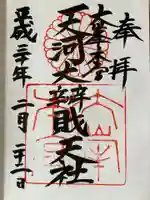 奉拝
大峯本宮
天河大辨財天社
平成三十年二月